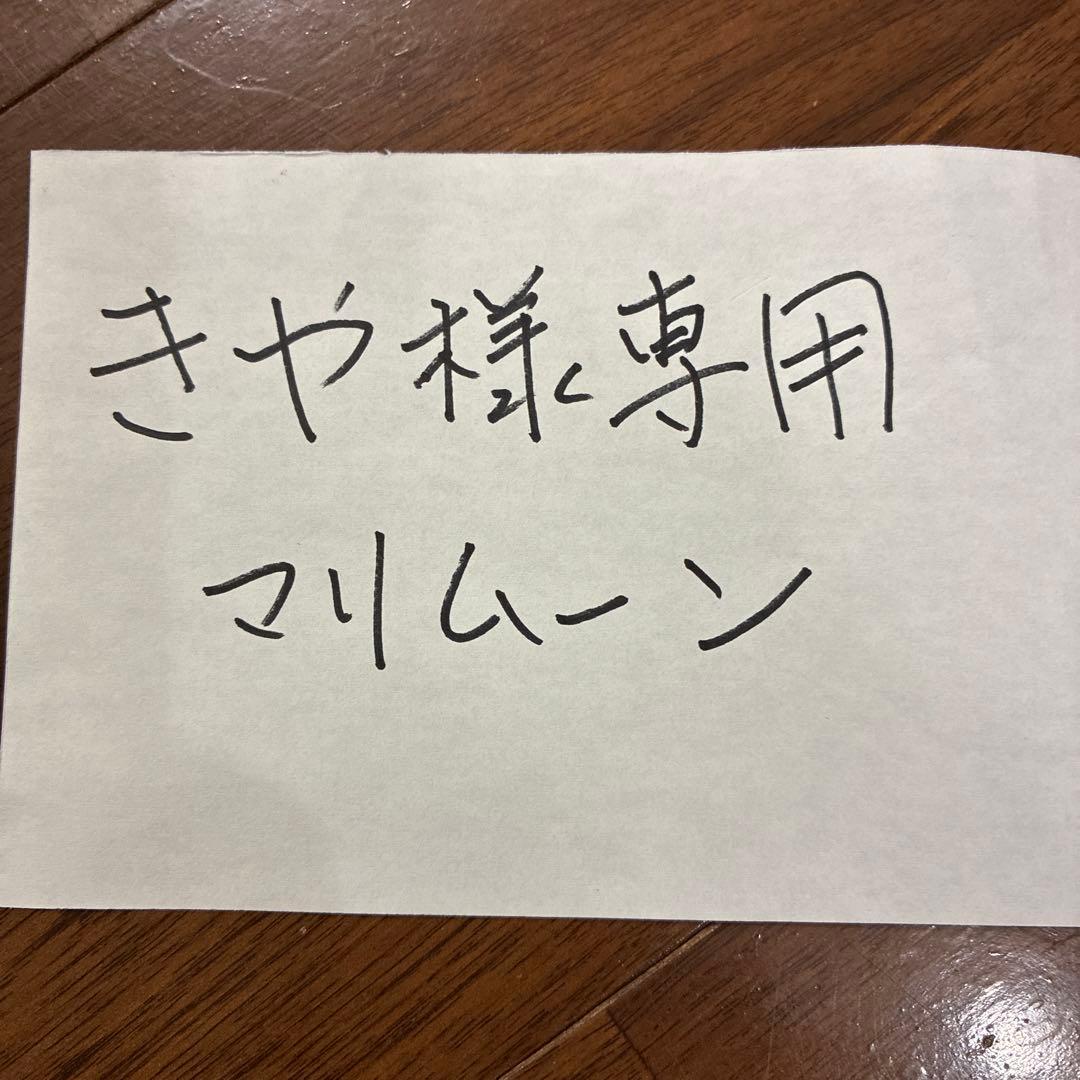 きや様専用
マリムーン